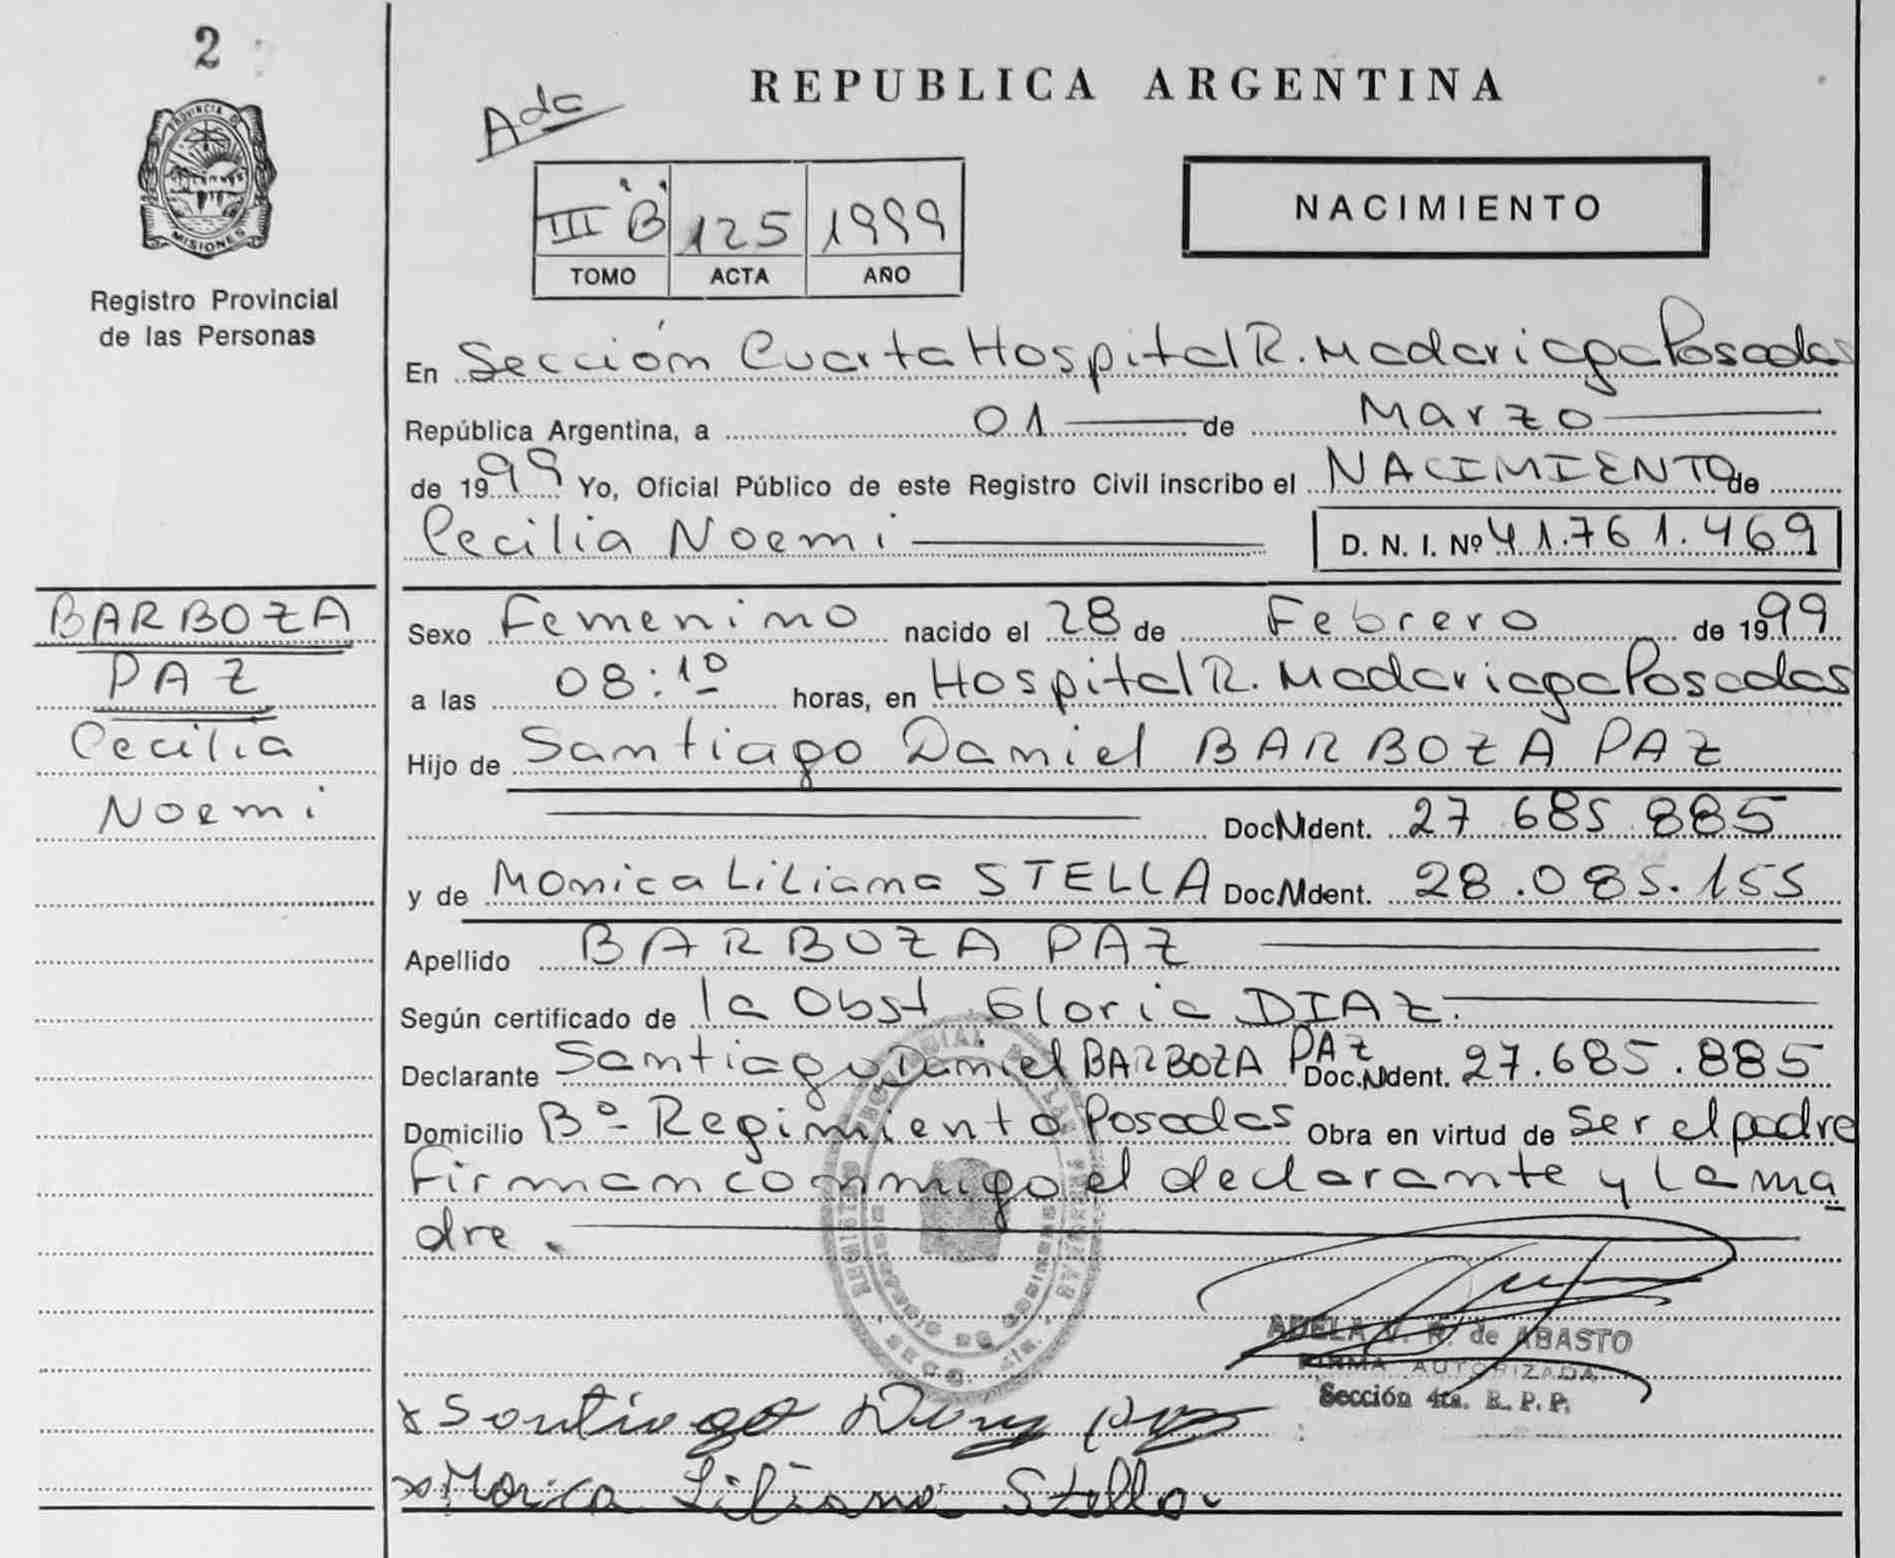 2
PROVINCIA DE
MISIONES
Registro Provincial
de las Personas
BARBOZA
PAZ
Cecilia
Noemi
REPUBLICA ARGENTINA
Ada
III B 125 1999
TOMO ACTA AÑO
NACIMIENTO
En Sección Cuarta Hospital R. Madariaga Posadas
República Argentina, a 01 de Marzo
de 1999 Yo, Oficial Público de este Registro Civil inscribo el NACIMIENTO de
Cecilia Noemi D. N. I. Nº 41.761.469
Sexo Femenino nacido el 28 de Febrero de 1999
a las 08:10 horas, en Hospital R. Madariaga Posadas
Hijo de Santiago Daniel BARBOZA PAZ
Doc. Ident. 27.685.885
y de Monica Liliana STELLA Doc. Ident. 28.085.155
Apellido BARBOZA PAZ
Según certificado de la Obst. Gloria DIAZ.
Declarante Santiago Daniel BARBOZA PAZ Doc. Ident. 27.685.885
Domicilio Bº Regimiento Posadas Obra en virtud de ser el padre
firman conmigo el declarante y la ma
dre.
ADELA V. R. de ABASTO
FIRMA AUTORIZADA
Sección 4ta. R. P. P.
x Santiago
x Monica Liliana Stella